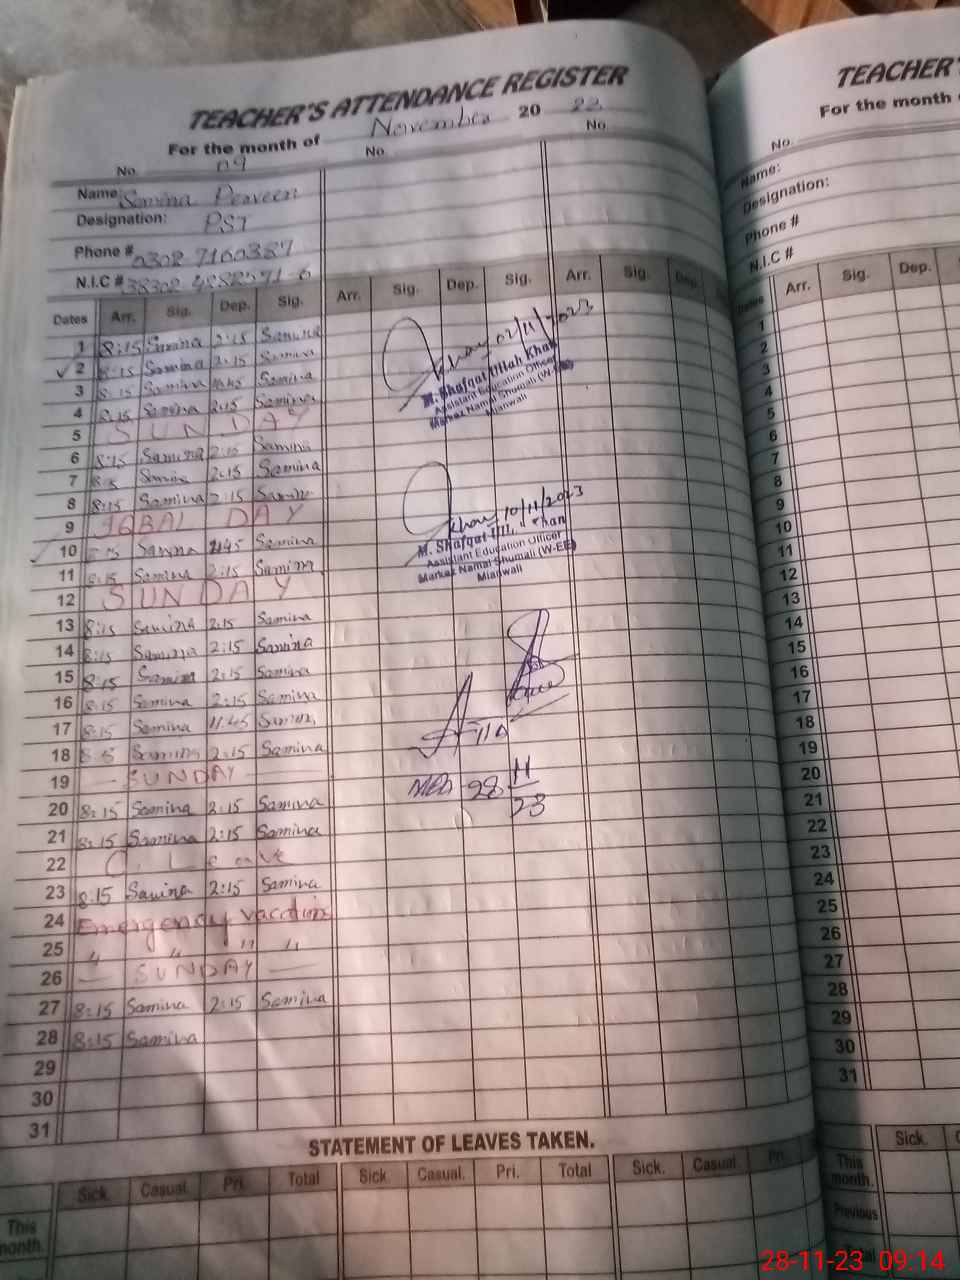 TEACHER'S ATTENDANCE REGISTER
For the month of November 20 23
No. 09 No. No.
Name: Samina Perveen
Designation: PST
Phone # 0302 7160387
N.I.C # 38302 4882571-6
Dates Arr. Sig. Dep. Sig. Arr. Sig. Dep. Sig. Arr. Sig. Dep.
1 8:15 Samina 2:15 Samina
2 8:15 Samina 2:15 Samina
3 8:15 Samina 11:45 Samina
4 8:15 Samina 2:15 Samina
5 SUNDAY
6 8:15 Samina 2:15 Samina
7 Samina 2:15 Samina
8 8:15 Samina 2:15 Samina
9 IQBAL DAY
10 Samina 11:45 Samina
11 8:15 Samina 2:15 Samina
12 SUNDAY
13 8:15 Samina 2:15 Samina
14 8:15 Samina 2:15 Samina
15 8:15 Samina 2:15 Samina
16 8:15 Samina 2:15 Samina
17 8:15 Samina 11:45 Samina
18 Samina 2:15 Samina
19 — SUNDAY —
20 8:15 Samina 2:15 Samina
21 8:15 Samina 2:15 Samina
22 C. Leave
23 8:15 Samina 2:15 Samina
24 Emergency vacation
25 " " " "
26 — SUNDAY —
27 8:15 Samina 2:15 Samina
28 8:15 Samina
29
30
31
02/11/2023
M. Shafqat Ullah Khan
Assistant Education Officer
Markaz Namal Shumali (W-EE)
Mianwali
10/11/2023
M. Shafqat Ullah Khan
Assistant Education Officer
Markaz Namal Shumali (W-EE)
Mianwali
28 11/23
STATEMENT OF LEAVES TAKEN.
Sick. Casual. Pri. Total Sick. Casual. Pri. Total Sick. Casual. Pri.
This month.
TEACHER'
For the month
No.
Name:
Designation:
Phone #
N.I.C #
Dates Arr. Sig. Dep.
1
2
3
4
5
6
7
8
9
10
11
12
13
14
15
16
17
18
19
20
21
22
23
24
25
26
27
28
29
30
31
Sick.
This month.
Previous
Total
28-11-23 09:14